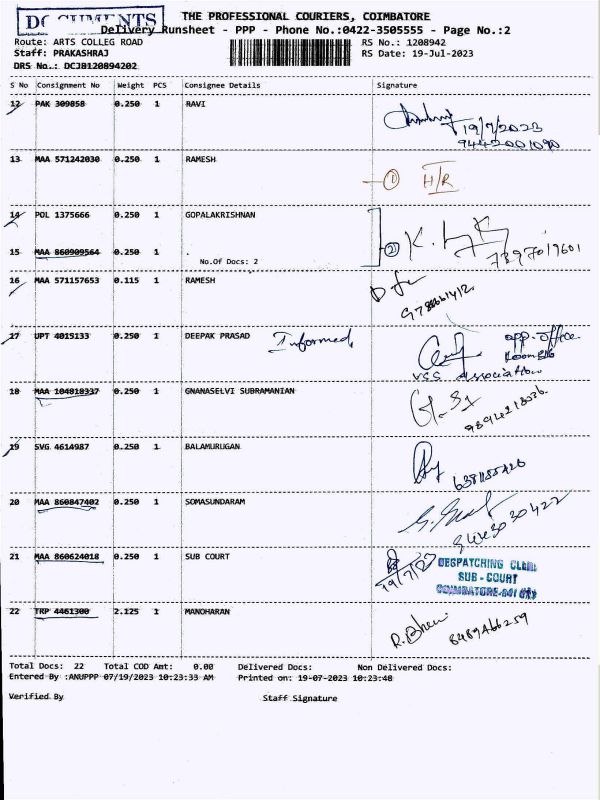 DOCUMENTS
THE PROFESSIONAL COURIERS, COIMBATORE
Delivery Runsheet - PPP - Phone No.:0422-3505555 - Page No.:2
Route: ARTS COLLEG ROAD
RS No.: 1208942
Staff: PRAKASHRAJ
RS Date: 19-Jul-2023
DRS No.: DCJB120894202
S No Consignment No Weight PCS Consignee Details Signature
12 PAK 309858 0.250 1 RAVI
19/7/2023
9442001090
13 MAA 571242030 0.250 1 RAMESH
1 H/R
14 POL 1375666 0.250 1 GOPALAKRISHNAN
2 7397019601
15 MAA 860909564 0.250 1 .
No.Of Docs: 2
16 MAA 571157653 0.115 1 RAMESH
17 UPT 4015133 0.250 1 DEEPAK PRASAD Informed
opp. office
VCS Association
18 MAA 104818337 0.250 1 GNANASELVI SUBRAMANIAN
19 SVG 4614987 0.250 1 BALAMURUGAN
20 MAA 860847402 0.250 1 SOMASUNDARAM
21 MAA 860624018 0.250 1 SUB COURT
DESPATCHING CLERK
SUB - COURT
COIMBATORE-641 018
22 TRP 4461300 2.125 1 MANOHARAN
8489466259
Total Docs: 22 Total COD Amt: 0.00 Delivered Docs: Non Delivered Docs:
Entered By :ANUPPP 07/19/2023 10:23:33 AM Printed on: 19-07-2023 10:23:40
Verified By Staff Signature